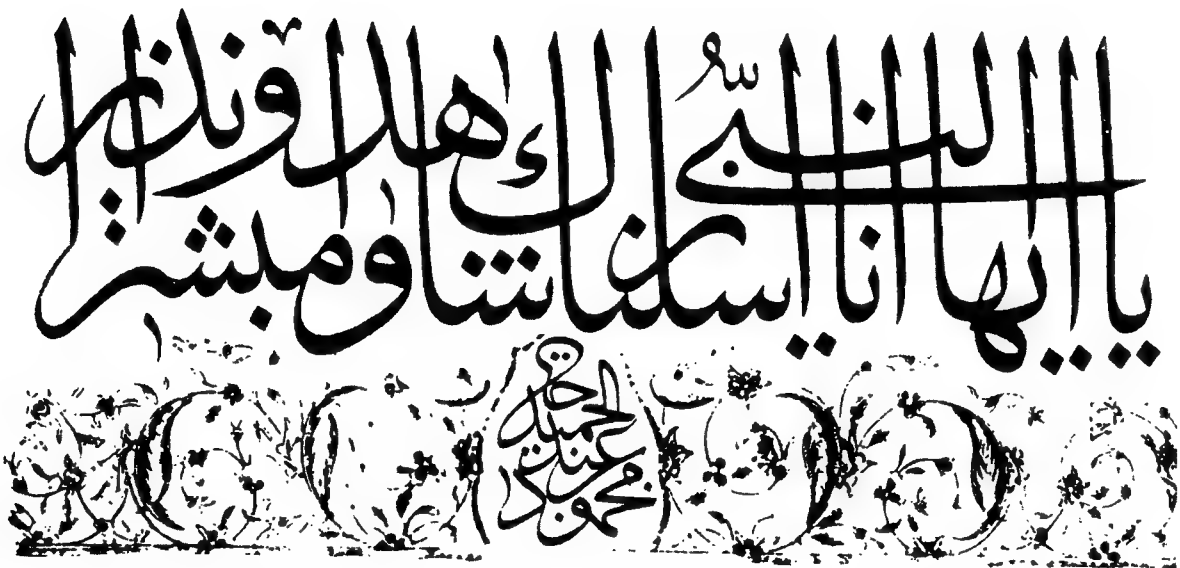 يا ايها النبى انا ارسلناك شاهدا ومبشرا ونذيرا
محمود بن عبد الحميد